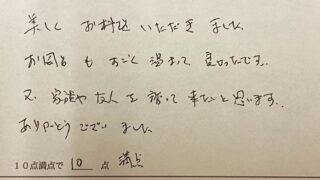 美しく お料理 いただき ました
お風呂 も すごく 温まって 良かったです。
又 家族や 友人 を 誘って 来たいと 思います。
ありがとう ございました
10点満点で 10 点 満点